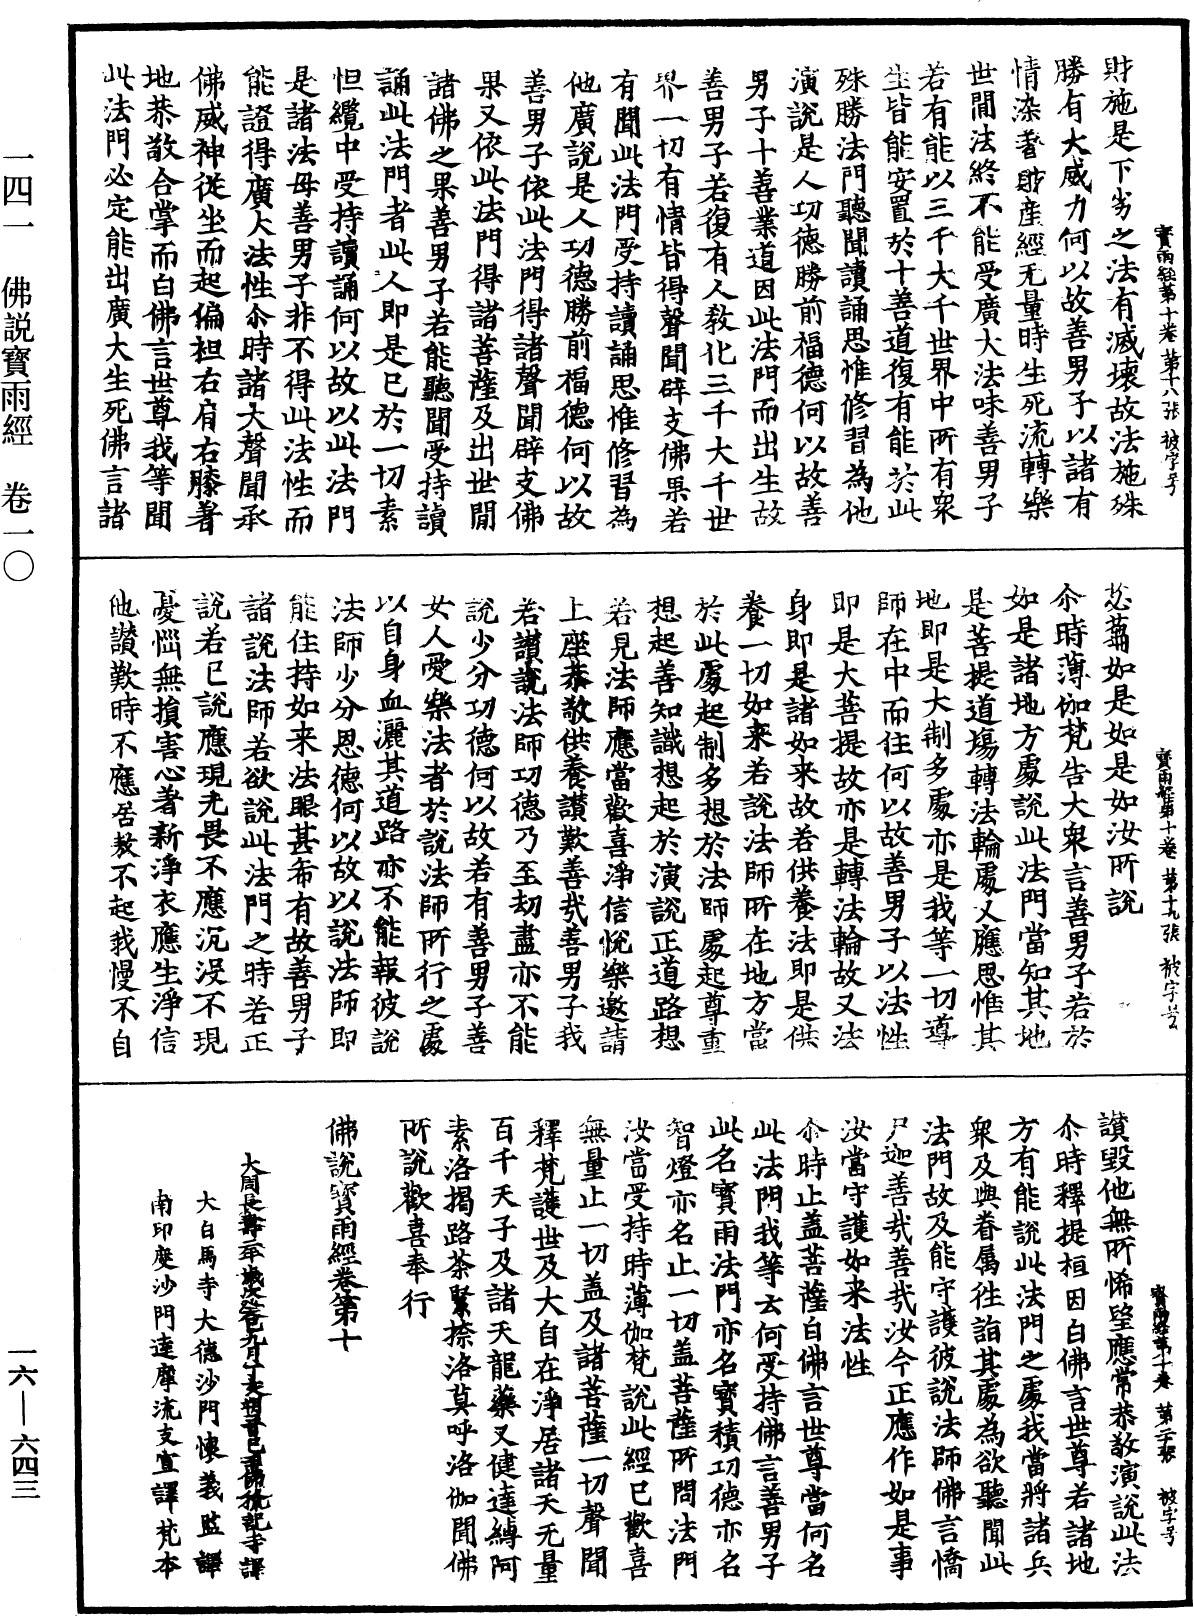 財施是下劣之法有滅壞故法施殊
勝有大威力何以故善男子以諸有
情染著財産經无量時生死流轉樂
世間法終不能受廣大法味善男子
若有能以三千大千世界中所有衆
生皆能安置於十善道復有能於此
殊勝法門聽聞讀誦思惟修習為他
演說是人功德勝前福德何以故善
男子十善業道因此法門而出生故
善男子若復有人教化三千大千世
界一切有情皆得聲聞辟支佛果若
有聞此法門受持讀誦思惟修習為
他廣說是人功德勝前福德何以故
善男子依此法門得諸聲聞辟支佛
果又依此法門得諸菩薩及出世間
諸佛之果善男子若能聽聞受持讀
誦此法門者此人即是已於一切素
怛纜中受持讀誦何以故以此法門
是諸法母善男子非不得此法性而
能證得廣大法性尒時諸大聲聞承
佛威神從坐而起偏袒右肩右膝著
地恭敬合掌而白佛言世尊我等聞
此法門必定能出廣大生死佛言諸
寶雨經第十卷 第十八張 被字号
苾蒭如是如是如汝所說
尒時薄伽梵告大衆言善男子若於
如是諸地方處說此法門當知其地
是菩提道場轉法輪處又應思惟其
地即是大制多處亦是我等一切導
師在中而住何以故善男子以法性
即是大菩提故亦是轉法輪故又法
身即是諸如来故若供養法即是供
養一切如来若說法師所在地方當
於此處起制多想於法師處起尊重
想起善知識想起於演說正道路想
若見法師應當歡喜淨信悅樂邀請
上座恭敬供養讃歎善哉善男子我
若讃說法師功德乃至劫盡亦不能
說少分功德何以故若有善男子善
女人愛樂法者於說法師所行之處
以自身血灑其道路亦不能報彼說
法師少分恩德何以故以說法師即
能住持如来法眼甚希有故善男子
諸說法師若欲說此法門之時若正
說若已說應現无畏不應沉没不現
憂惱無損害心著新淨衣應生淨信
他讃歎時不應居教不起我慢不自
寶雨經第十卷 第十九張 被字号
讃毀他無所悕望應常恭敬演說此法
尒時釋提桓因白佛言世尊若諸地
方有能說此法門之處我當將諸兵
衆及與眷属徃詣其處為欲聽聞此
法門故及能守護彼說法師佛言憍
尸迦善哉善哉汝今正應作如是事
汝當守護如来法性
尒時止盖菩薩白佛言世尊當何名
此法門我等云何受持佛言善男子
此名寶雨法門亦名寶積功德亦名
智燈亦名止一切盖菩薩所問法門
汝當受持時薄伽梵說此經已歡喜
無量止一切盖及諸菩薩一切聲聞
釋梵護世及大自在淨居諸天无量
百千天子及諸天龍藥叉健達縛阿
素洛揭路荼緊捺洛莫呼洛伽聞佛
所說歡喜奉行
佛說寶雨經卷第十
大周長壽二年歲次癸巳九月丁亥朔三日己丑佛授記寺譯
大白馬寺大德沙門懷義監譯
南印度沙門達摩流支宣譯梵本
寶雨經第十卷 第二十張 被字号
一四一 佛説寶雨經 卷一〇
一六—六四三